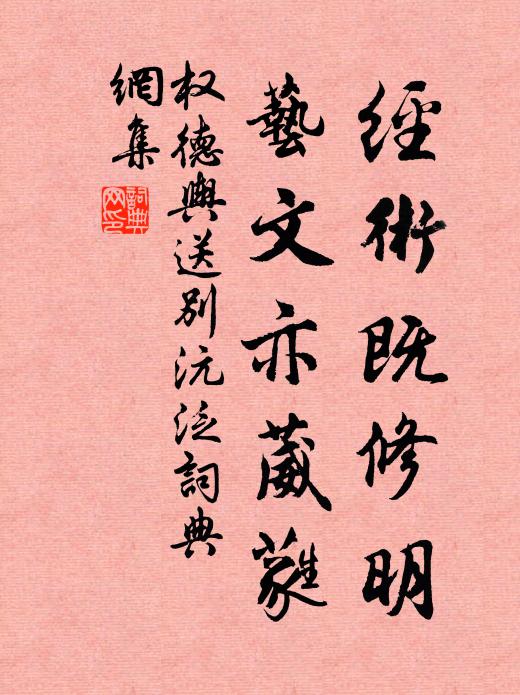 經術既修明
藝文亦葳蕤
权德輿送別沅泛詞典
網集
詞典
网印